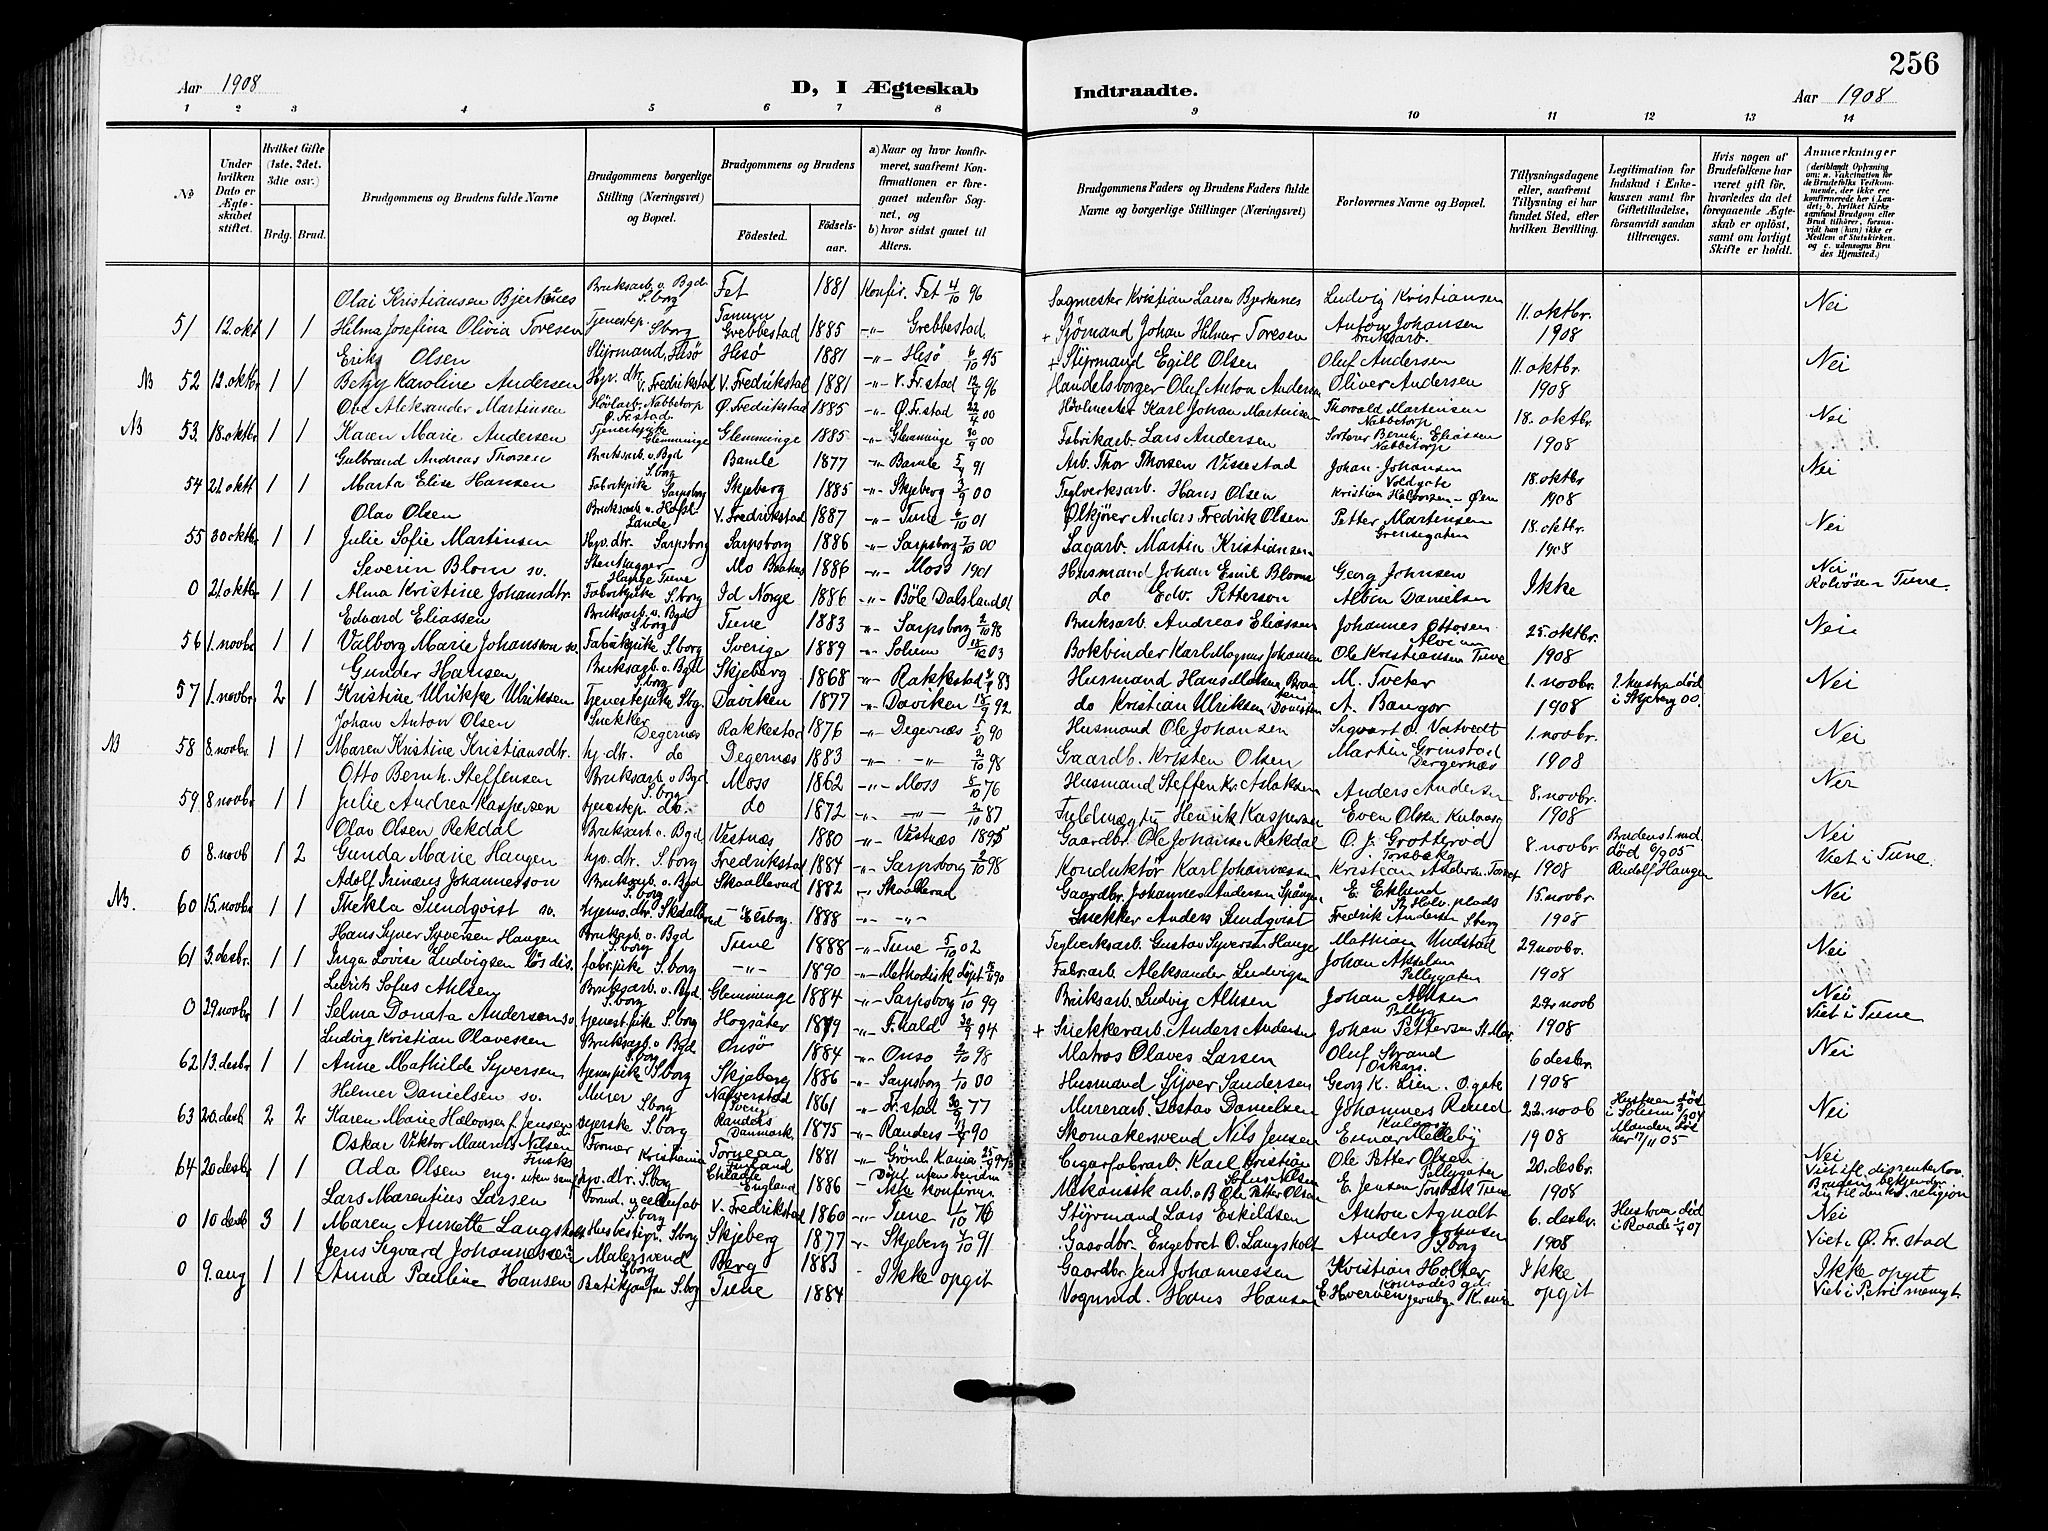 256
Aar 1908
D, I Ægteskab
Indtraadte.
Aar 1908
1 2 3 4 5 6 7 8 9 10 11 12 13 14
No
Under hvilken Dato er Ægteskabet stiftet.
Hvilket Gifte (1ste, 2det, 3die osv.)
Brdg. Brud.
Brudgommens og Brudens fulde Navne
Brudgommens borgerlige Stilling (Næringsvei) og Bopæl.
Brudgommens og Brudens
Fødested. Fødselsaar.
a) Naar og hvor konfirmeret, saafremt Konfirmationen er foregaaet udenfor Sognet, og
b) hvor sidst gaaet til Alters.
Brudgommens Faders og Brudens Faders fulde Navne og borgerlige Stillinger (Næringsvei)
Forlovernes Navne og Bopæl.
Tillysningsdagene eller, saafremt Tillysning ei har fundet Sted, efter hvilken Bevilling.
Legitimation for Indskud i Enkekassen samt for Giftetilladelse, forsaavidt saadan tiltrænges.
Hvis nogen af Brudefolkene har været gift før, hvorledes da det foregaaende Ægteskab er opløst, samt om lovligt Skifte er holdt.
Anmærkninger
Olai Kristiansen Bjerknes Bruksarb. v. Bgd S.borg Fet 1881 Konfir. Fet 4/10 96 Sagmester Kristian Larsen Bjerkenes Ludvig Kristiansen 11. oktbr. Nei
51 12. okt 1 1 Helma Josefina Olivia Toresen Tjenestep. S.borg Tanum Grebbestad 1885 -"- Grebbestad + Sjømand Johan Helmer Toresen Anton Johansen bruksarb. 1908
Erik Olsen Styrmand, Hisø Hisø 1881 -"- Hisø 6/10 95 + Styrmand Egill Olsen Oluf Andersen 11. oktbr. Nei
NB 52 12. oktbr 1 1 Betzy Karoline Andersen Hjv. dtr. V. Fredrikstad V. Fredrikstad 1881 -"- V. Fr.stad 96 Handelsborger Oluf Anton Andersen Oliver Andersen 1908
Ove Aleksander Martinsen Høvlarb. Nabbetorp Ø. Fr.stad Ø. Fredrikstad 1885 -"- Ø. Fr.stad 22/4 00 Høvlmester Karl Johan Martinsen Thorvald Martinsen Nabbetorp 18. oktbr. Nei
NB 53. 18. oktbr 1 1 Karen Marie Andersen Tjenestepike Glemminge Glemminge 1885 -"- Glemminge 30/9 00 Fabrikarb. Lars Andersen Bernh. Eliassen Nabbetorp 1908
Gulbrand Andreas Thorsen Bruksarb. v. Bgd S.borg Bamle 1877 -"- Bamle 91 Arb. Thor Thorsen Vissestad Johan Johansen Voldgate 18. oktbr. Nei
54 21. okt 1 1 Marta Elise Hansen Fabrikpike Sarpsborg Skjeberg 1885 -"- Skjeberg 3/9 00 Teglverksarb. Hans Olsen Kristian Halvorsen 1908
Olav Olsen Bruksarb. v. Hafsl Lande V. Fredrikstad 1887 -"- Tune 6/10 01 Ølkjører Anders Fredrik Olsen Petter Martinsen Grensegaten 18. oktbr. Nei
55 30 oktbr 1 1 Julie Sofie Martinsen Hjv. dtr. Sarpsborg Sarpsborg 1886 -"- Sarpsborg 7/10 00 Sagarb. Martin Kristiansen 1908
Severin Blom sv. Stenhugger Hauge Tune Mo 1886 -"- Moss 1901 Husmand Johan Emil Blom Georg Johnsen Ikke Nei
0 21. oktbr 1 1 Alma Kristine Johansdtr. Fabrikpike S.borg Id Norge 1886 -"- Böle Dalsland do Edv. Petterson Albin Danielsen Rolvsøen Tune
Edvard Eliassen Bruksarb. v. Bgd S.borg Tune 1883 -"- Sarpsborg 2/10 98 Bruksarb. Andreas Eliassen Johannes Ottosen 25. oktbr. Nei
56 1. novbr 1 1 Valborg Marie Johansson sv. Fabrikpike S.borg Sverige 1889 -"- Solum 03 Bokbinder Karl Magnus Johansen Ole Kristiansen Tune 1908
Gunder Hansen Bruksarb. v. Bgd S.borg Skjeberg 1868 -"- Rakkestad 83 Husmand Hans M. Tveter 1. novbr 1. hustru død i Skjeberg 00. Nei
57 1. novbr 2 1 Kristine Ulrikke Ulriksen Tjenestepike Sbg. Daviken 1877 -"- Daviken 18/9 92 do Kristian Ulriksen A. Bangor 1908
Johan Anton Olsen Snekker Degernes Rakkestad 1876 -"- Degernæs 5/10 90 Husmand Ole Johansen Sigvart O. Vatvedt 1. novbr. Nei
NB 58 8. novbr 1 1 Maren Kristine Kristiansdtr. hj. dtr. do Degernæs 1883 -"- -"- 2/10 98 Gaardb. Kristen Olsen Martin Grinstad Degernæs 1908
Otto Bernh. Steffensen Bruksarb. v Bgd S.borg Moss 1862 -"- Moss 8/10 76 Husmand Steffen Kr. Aslaksen Anders Andersen 8. novbr. Nei
59 8 novbr 1 1 Julie Andrea Kaspersen tjenestep. do. do 1872 -"- 2/10 87 Fuldmægtig Henrik Kaspersen Even Olsen Kulaas 1908
Olav Olsen Rekdal Bruksarb. v. Bgd Vestnæs 1880 -"- Vestnæs 1895 Gaardbr. Ole Johansen Rekdal O. J. Grotterød Torsbekg 8. novbr Brudens 1. md død 6/9 05 Nei
0 8. novb 1 2 Gunda Marie Haugen hjv. dtr. S.borg Fredrikstad 1884 -"- Sarpsborg 2/10 98 Konduktør Karl Johannessen Kristian Andersen 1908 Rudolf Haugen Viet i Tune
Adolf Irinæus Johannesson Bruksarb. v. Bgd S.borg Skaallerud 1882 -"- Skaallerud Gaardbr. Johannes Andersen E. Eklund St. Halv. plads 15. novbr Nei
NB. 60 15. novbr 1 1 Thekla Sundqvist sv. hjemv. dtr. 1888 -"- -"- Snekker Anders Sundqvist Fredrik Andersen Sberg 1908
Hans Syver Syversen Haugen Bruksarb. v. Bgd S.borg Tune 1888 -"- Tune 5/10 02 Teglverksarb. Gustav Syversen Haugen Mathias Undstad 29 novbr. Nei
61 3. desbr. 1 1 Inga Lovise Ludvigsen løs dis. fabrpike S.borg -"- 1890 -"- Methodisk døpt Fabrarb. Aleksander Ludvigsen Johan Pellygaten 1908
Lurits Sofus Ahlsen Bruksarb. v. Bgd, S.borg Glemminge 1884 -"- Sarpsborg 1/10 99 Bruksarb. Ludvig Ahlsen Johan Ahlsen Pellyg. 22 novb Nei
0 29 novbr 1 1 Selma Donata Anderson sv. tjenestpike S.borg Högsäter 1879 -"- F.hald 94 + Snekkerarb. Anders Andersen Johan Pettersen St. Mar. 1908 Viet i Tune
Ludvig Kristian Olavesen Bruksarb. v Bgd S.borg Onsø 1884 -"- Onsø 2/10 98 Matros Olaves Larsen Oluf Strand 6 desbr Nei
62 13. desbr 1 1 Anne Mathilde Syversen tjenerpike S.borg Skjeberg 1886 -"- Sarpsborg 1/10 00 Husmand Syver Sandersen Georg K. Lien. O. gate 1908
Helmer Danielsen sv. Murer S.borg Naverstad Sverig 1861 -"- Fr.stad 30/9 77 Murerarb. Gustav Danielsen Johannes Rused Kulaas 22. novb Hustruen død i Solum 04 Nei
63 20. desb 2 2 Karen Marie Halvorsen f. Jensen syerske S.borg Randers Danmark. 1875 -"- Randers 90 Skomakersvend Nils Jensen Einar Melleby 1908 Manden død her 17/11 05
Oskar Viktor Mauritz Nilsen Finsks Former Kristiania Torneaa Finland 1881 -"- Grönl. Kania 25/9 97 Cigarfabrarb. Karl Kristian Ole Petter Olsen Pellygaten 20. desbr. Nei
64 20 desbr 1 1 Ada Olsen eng. hjv. dtr. S.borg England 1886 Ikke konfirm. Mekanisk arb. v B Ole Petter Olsen E. Jensen Torsbæk Tune 1908
Lars Marentius Larsen Forml. v cellfab S.borg V. Fredrikstad 1860 -"- Tune 1/10 76 Styrmand Lars Eskildsen Anton Agnalt 6. desbr. Hustruen død i Raade 1/4 07 Nei
0 10 desb 3 1 Maren Annette Langsholt Husbestyr. S.borg Skjeberg 1877 -"- Skjeberg 4/10 91 Gaardbr. Engebret O. Langsholt Anders Johnsen S.borg 1908 Viet i Ø. Fr.stad
Jens Sigvard Johannessen Malersvend S.borg Berg 1883 Ikke opgit Gaardbr Jens Johannessen Kristian Holter Ikke Ikke opgit
0 9. aug 1 1 Anna Pauline Hansen Butikjomfru S.borg Tune 1884 Vognmd. Hans Hansen E. Hverven opgit Viet i Petri menigt.